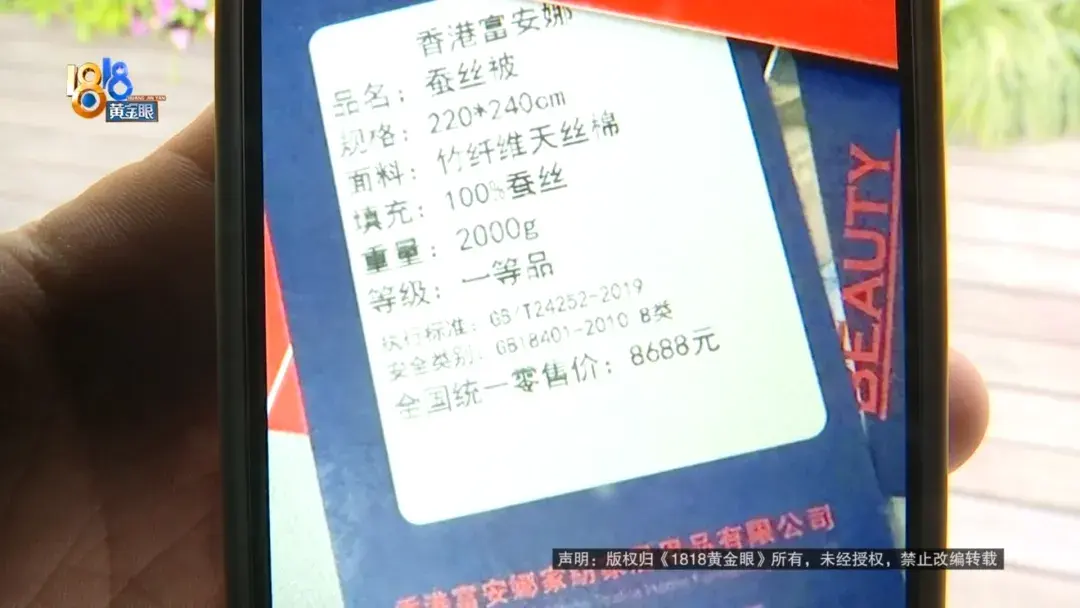 1818
黄金眼
香港富安娜
品名：蚕丝被
规格：220*240cm
面料：竹纤维天丝棉
填充：100%蚕丝
重量：2000g
等级：一等品
执行标准：GB/T24252-2019
安全类别：GB18401-2010 B类
全国统一零售价：8688元
BEAUTY
香港富安娜家纺
用品有限公司
声明：版权归《1818黄金眼》所有，未经授权，禁止改编转载